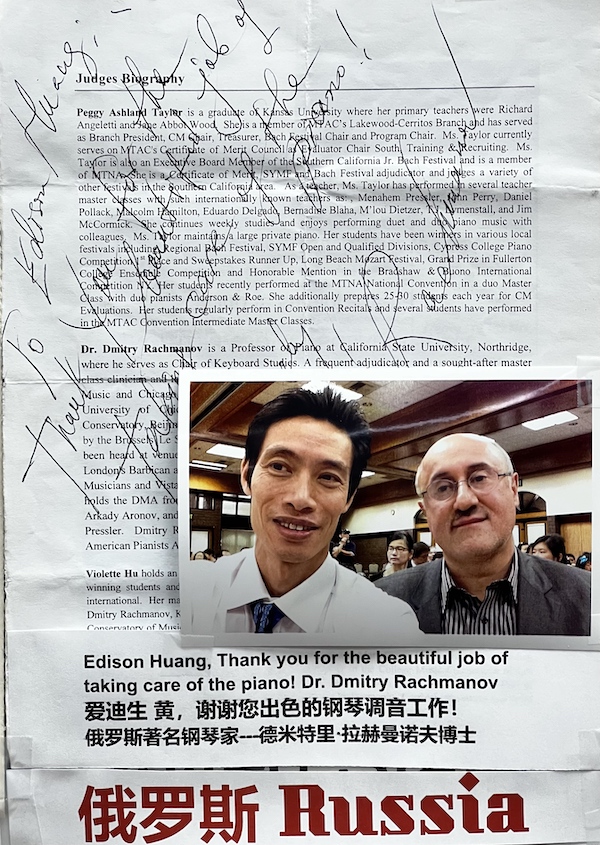 To Edison Huang,
Thank you for the
beautiful job of
taking care
of the piano!
Judges Biography
Peggy Ashland Taylor is a graduate of Kansas University where her primary teachers were Richard
Angeletti and Jane Abbot Wood. She is a member of MTAC's Lakewood-Cerritos Branch and has served
as Branch President, CM Chair, Treasurer, Bach Festival Chair and Program Chair. Ms. Taylor currently
serves on MTAC's Certificate of Merit Council as Evaluator Chair South, Training & Recruiting. Ms.
Taylor is also an Executive Board Member of the Southern California Jr. Bach Festival and is a member
of MTNA. She is a Certificate of Merit, SYMF and Bach Festival adjudicator and judges a variety of
other festivals in the Southern California area. As a teacher, Ms. Taylor has performed in several teacher
master classes with such internationally known teachers as, Menahem Pressler, John Perry, Daniel
Pollack, Malcolm Hamilton, Eduardo Delgado, Bernadine Blaha, M'lou Dietzer, and Jim
McCormick. She continues weekly studies and enjoys performing duet and duo piano music with
colleagues. Ms. Taylor maintains a large private piano. Her students have been winners in various local
festivals including Regional Bach Festival, SYMF Open and Qualified Divisions, Cypress College Piano
Competition 1st Place and Sweepstakes Runner Up, Long Beach Mozart Festival, Grand Prize in Fullerton
College Ensemble Competition and Honorable Mention in the Bradshaw & Buono International
Competition Her students recently performed at the MTNA National Convention in a duo Master
Class with duo pianists Anderson & Roe. She additionally prepares 25-30 students each year for CM
Evaluations. Her students regularly perform in Convention Recitals and several students have performed
in the MTAC Convention Intermediate Master Classes.
Dr. Dmitry Rachmanov is a Professor of Piano at California State University, Northridge,
where he serves as Chair of Keyboard Studies. A frequent adjudicator and a sought-after master
class clinician and
Music and Chicag
University of
Conservatory, Beijin
by the Brussels Le S
been heard at venue
London's Barbican a
Musicians and Vista
holds the DMA fro
Arkady Aronov, and
Pressler. Dmitry R
American Pianists A
Violette Hu holds an
winning students and
international. Her ma
Dmitry Rachmanov, K
Conservatory of Musi
Edison Huang, Thank you for the beautiful job of
taking care of the piano! Dr. Dmitry Rachmanov
爱迪生 黄，谢谢您出色的钢琴调音工作！
俄罗斯著名钢琴家---德米特里·拉赫曼诺夫博士
俄罗斯 Russia